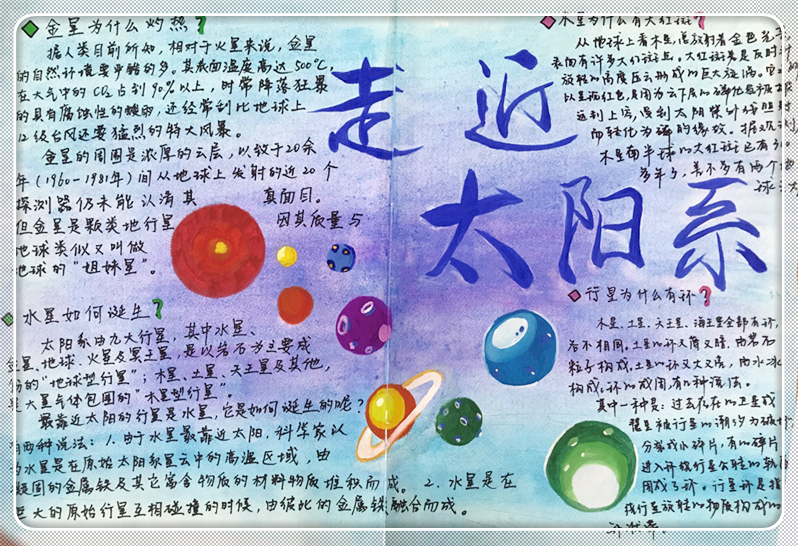 金星为什么灼热?
据人类目前所知,相对于火星来说,金星
的自然环境要严酷的多。其表面温度高达500℃,
在大气中的CO₂占到90%以上,时常降落狂暴
的具有腐蚀性的酸雨,还经常刮比地球上
12级台风还要猛烈的特大风暴。
金星的周围是浓厚的云层,以致于20余
年(1960-1981年)间从地球上发射的近20个
探测器仍未能认清其真面目。
但金星是颗类地行星 因其质量与
地球类似又叫做
地球的“姐妹星”。
水星如何诞生?
太阳系由九大行星,其中水星、
金星、地球、火星及冥王星,是以岩石为主要成
份的“地球型行星”;木星、土星、天王星及其他,
是大量气体包围的“木星型行星”。
最靠近太阳的行星是水星,它是如何诞生的呢?
有两种说法:1.由于水星最靠近太阳,科学家以
为水星是在原始太阳系星云中的高温区域,由
凝固的金属铁及其它富含物质的材料物质堆积而成。2.水星是在
巨大的原始行星互相碰撞的时候,由彼此的金属铁融合而成。
走近
太阳系
木星为什么有大红斑?
从地球上看木星,总放射着金色光
表面有许多大红斑点。大红斑是反时针
旋转的高度压云形成的巨大旋涡。
以呈现红色,是因为云下层的磷化
达到上层,受到太阳紫外线照射
而转化为磷的缘故。据观测
木星南半球的大红斑已有
多年了,差不多有两个地
球
行星为什么有环?
木星、土星、天王星、海王星全部有环,
各不相同。土星的环又薄又暗,由岩石
粒子构成,土星的环又大又亮,由水冰
构成,环的成因有两种说法。
其中一种是:过去存在的卫星或
彗星被行星的潮汐力破坏,
分裂成小碎片,有的碎片
进入环绕行星公转的轨道
形成了环。行星环是指
绕行星旋转的物质构成的